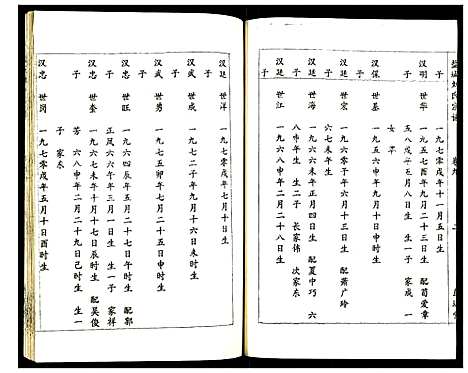 一九七零戌年十一月五日生
汉明 世华 一九五七酉年八月二十三日生 配荀爱章
子 五八戌年五月八日生 生一子 家成 一
女 平
汉保 世基 一九六八申年六月十一日申时生
子
汉廷 世宏 一九六零子年六月十八日生 配萧广玲
子 六七未年生
汉廷 世海 一九六六午年四月四日生 配夏中巧 六
子 八申年生 生二子 长家伟 次家东
汉廷 世江 一九六八申年二月二十八日生
子
汉廷 世洋 一九七零戌年七月十日生
子
汉武 世成 一九七二子年九月十六日未时生
子
汉武 世勇 一九七五卯年七月二十五日生
子
汉忠 世旺 一九六四辰年五月二十五日生 配郭
子 正凤六六午年三月一日生 生一子 家祥
汉忠 世奎 一九六七未年十月十七日辰时生 配吴俊
子 芳 六八申年二月二十九日己时生 生一
子 家乐
汉忠 世岗 一九七零戌年五月十日酉时生